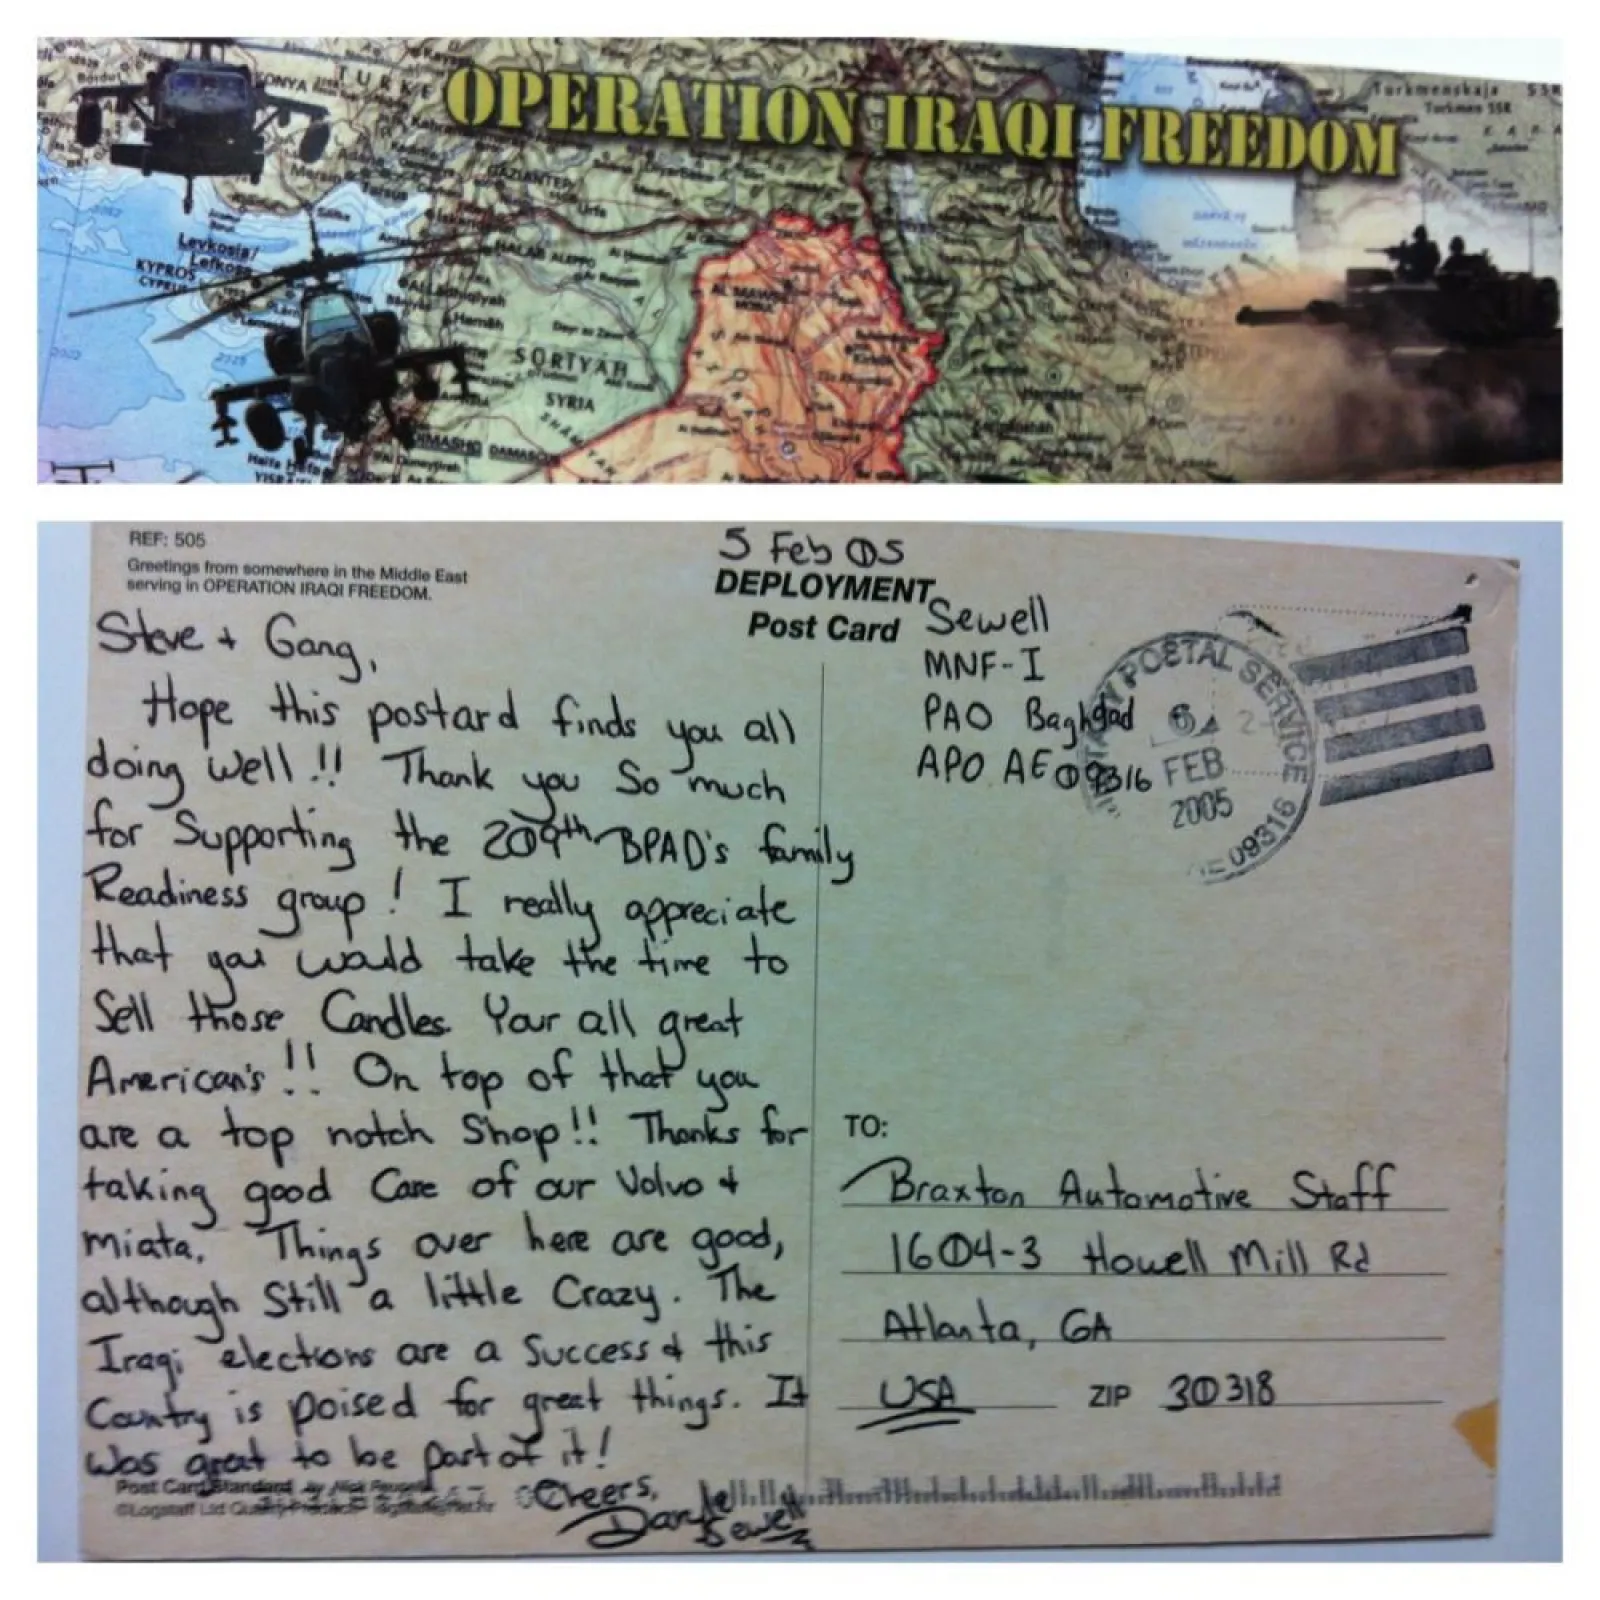 OPERATION IRAQI FREEDOM
TURK
KONYA
GAZIANTEP
Urfa
Mersin
Tarsus
Levkosia/
Lefkosa
KYPROS
CYPRUS
HALAB ALEPPO
Hamāh
SŪRĪYAH
SYRIA
DIMASHQ DAMASC
Turkmenskaja SSR
Turkmen SSR
REF: 505
Greetings from somewhere in the Middle East
serving in OPERATION IRAQI FREEDOM.
5 Feb 05
DEPLOYMENT
Post Card
Steve + Gang,
Hope this postard finds you all
doing well!! Thank you So much
for Supporting the 209th BPAD's family
Readiness group! I really appreciate
that you would take the time to
Sell those Candles. Your all great
American's!! On top of that you
are a top notch Shop!! Thanks for
taking good Care of our Volvo +
Miata. Things over here are good,
although Still a little Crazy. The
Iraqi elections are a Success & this
Country is poised for great things. It
was great to be part of it!
Cheers,
Sewell
Post Card Standard
Sewell
MNF-I
PAO Baghdad
APO AE 09316
POSTAL SERVICE
6
FEB
2005
AE 09316
TO:
Braxton Automotive Staff
1604-3 Howell Mill Rd
Atlanta, GA
USA ZIP 30318